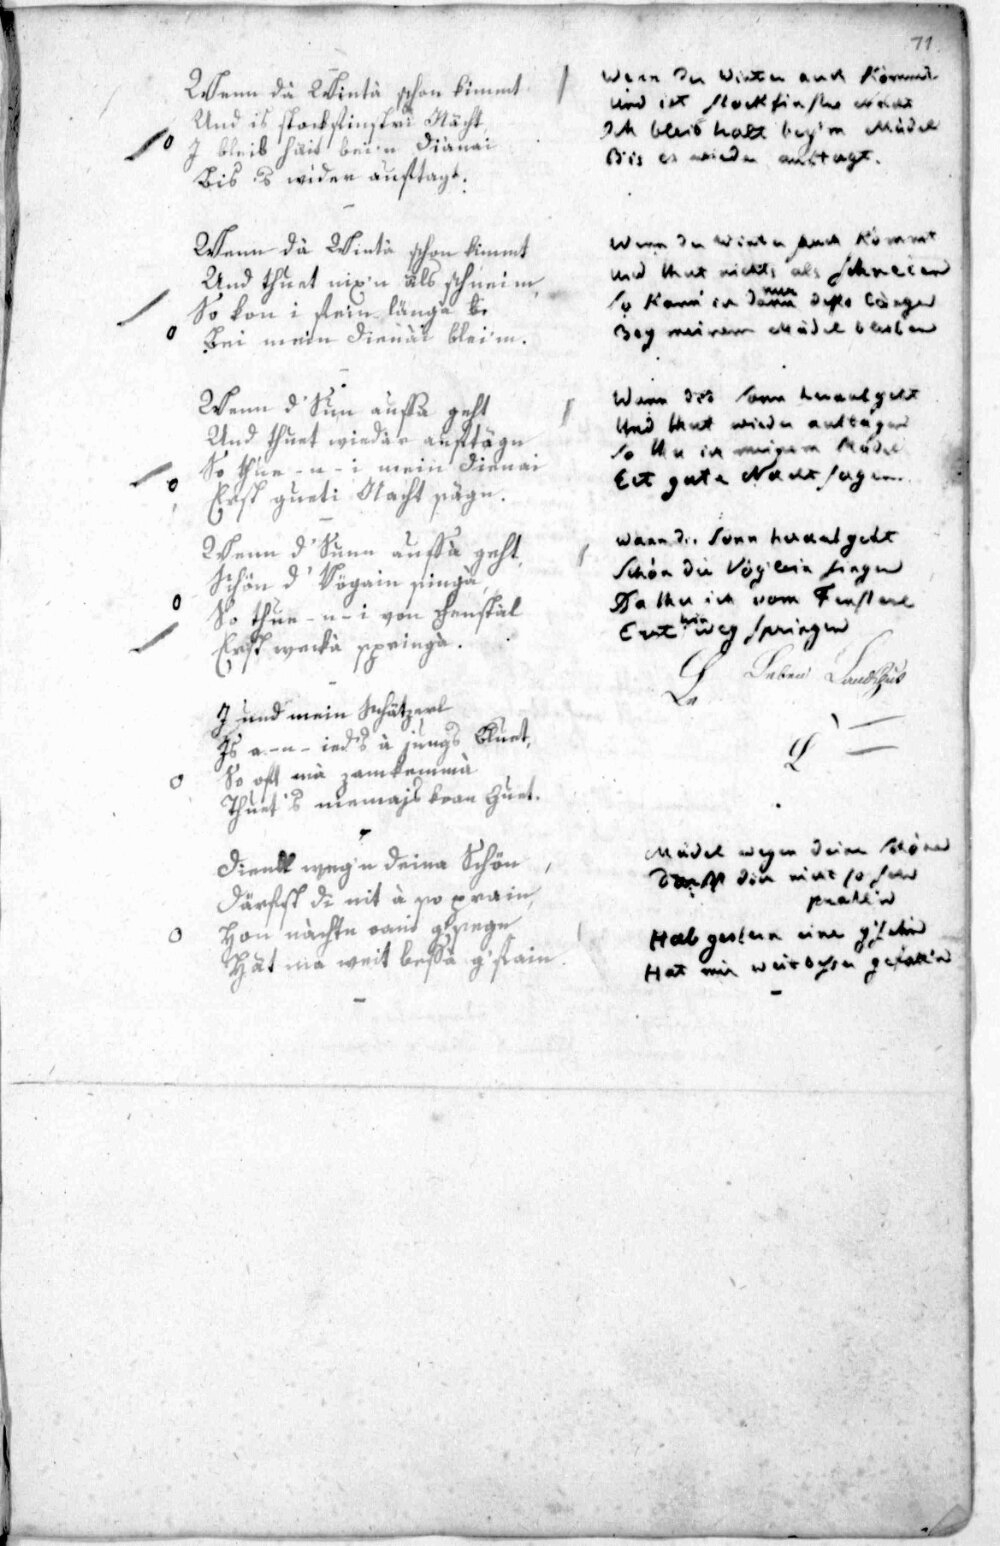 71
Wenn dà Wintà schon kimmt
Und is stockfinstri Nächt,
I bleib hält bei'n Dianai
Bis 's wider auftagt.
Wenn dà Wintà schon kimmt
Und thuet nix'n als schneim,
So kon i fein längà
Bei mein Dienài bleim.
Wenn d' Sun aufsà geht
Und thuet wiedàr auftägn
So thue-n-i mein Dienai
Erst gueti Nacht sägn.
Wenn d' Sunn aufsà geht,
Schön d' Vögain singà,
So thue-n-i von Fenstäl
Erst weckà springà.
I und mein Schätzerl
Is a-n-ied's à jungs Bluet,
So oft mà zamkemmà
Thuet's niemajs koan Guet.
Diendl weg'n deina Schön
Därfst di nit à so prain,
Hon nächtn oani gsegn
Hät ma weit bessà g'fäin.
Wenn der Winter auch kömmt
Und ist stockfinstre Nacht
Ich bleib halt bey'm Mädel
Bis es wieder auftagt.
Wenn der Winter auch kömmt
Und thut nichts als schneien
So kann ich dann nur desto länger
Bey meinem Mädel bleiben
Wann die Sonn heraufgeht
Und thut wieder auftagen
So thu ich meinem Mädel
Erst gute Nacht sagen.
Wann die Sonn heraufgeht
Schön die Vöglein singen
Da thu ich vom Fensterl
Erst hinweg springen
Leben Landshut
Mädel wegen deiner Schöne
Darfst dich nicht so sehr
prahl'n
Hab gestern eine g'sehn
Hat mir weit besser gefall'n